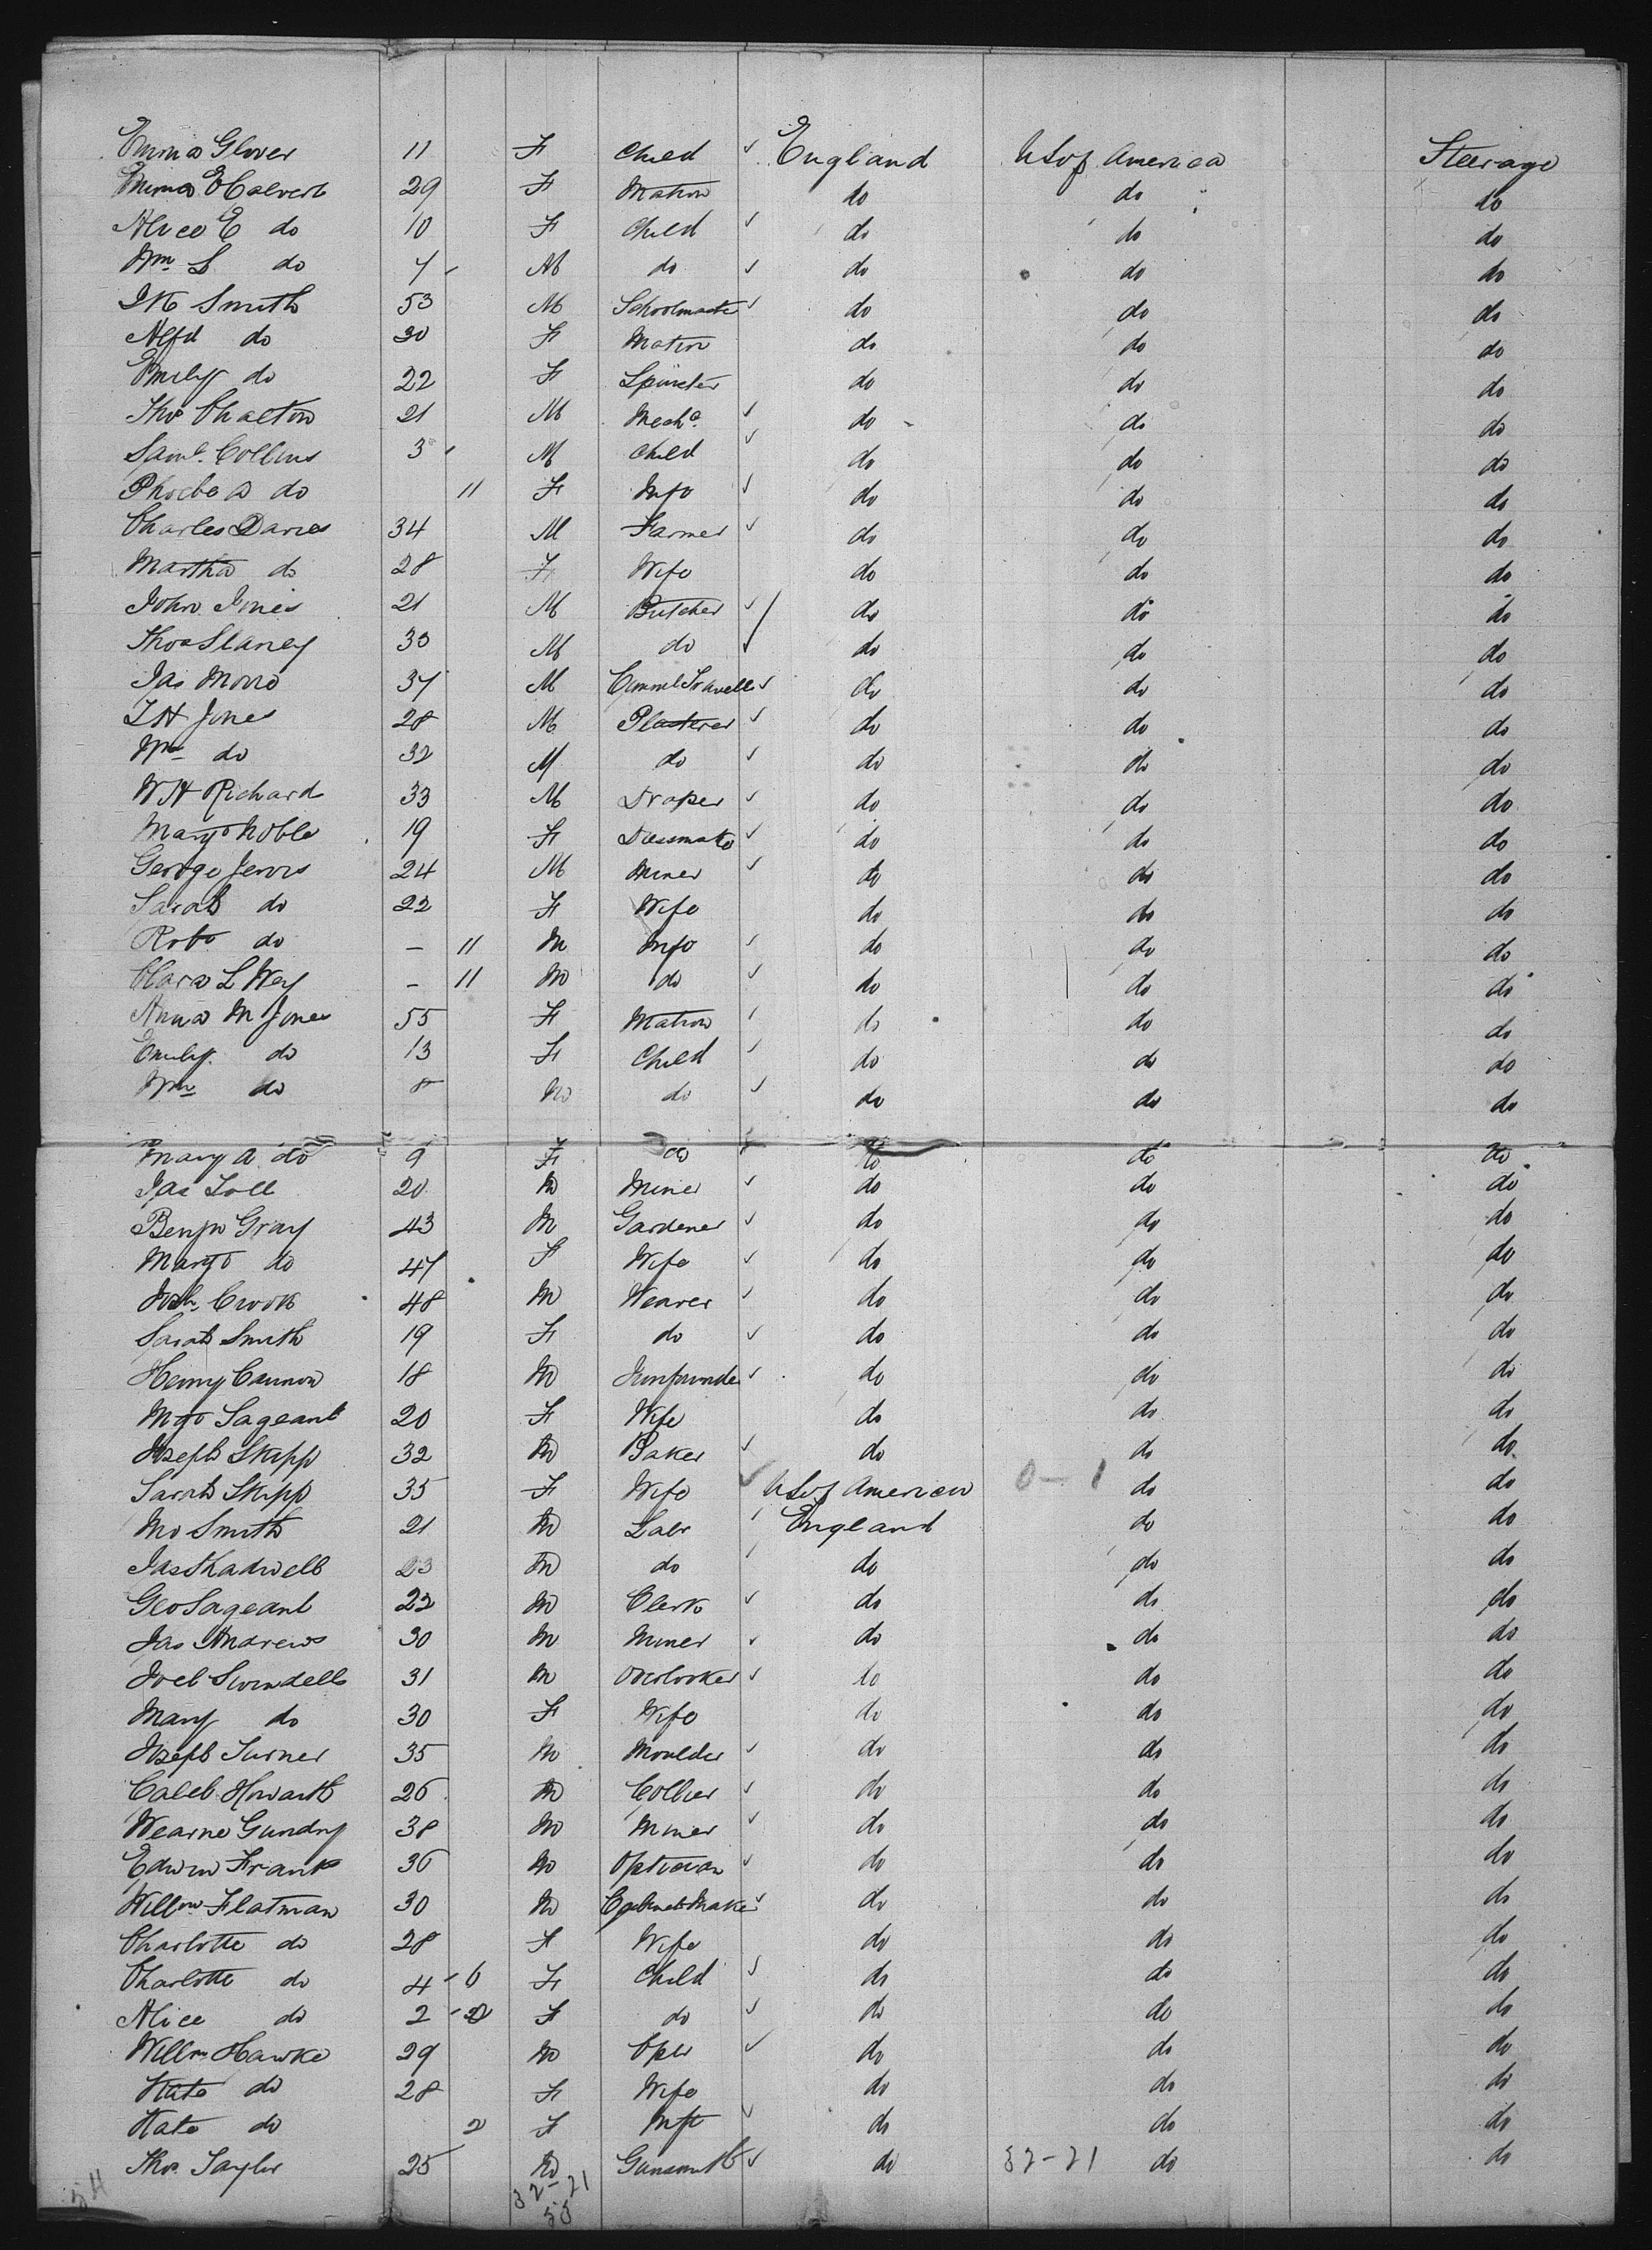 Emma Glover 11 F Child ✓ England U S of America Steerage
Emma E Calvert 29 F Matron do do do
Alice E do 10 F Child ✓ do do do
Wm S do 7 M do ✓ do do do
Smith 53 M Schoolmaster ✓ do do do
Alfd do 30 F Matron do do do
Emily do 22 F Spinster do do do
Thos Chalton 21 M Mechc ✓ do do do
Saml. Collins 3 M Child ✓ do do do
Phoebe A do 11 F Inft ✓ do do do
Charles Davies 34 M Farmer ✓ do do do
Martha do 28 F Wife do do do
John Jones 21 M Butcher ✓ do do do
Thos Slaney 30 M do ✓ do do do
Jas Morro 37 M Comml Travell ✓ do do do
T H Jones 28 M Plasterer ✓ do do do
Wm do 32 M do ✓ do do do
W H Richards 33 M Draper ✓ do do do
Margt Noble 19 F Dressmake ✓ do do do
George Jervis 24 M Miner ✓ do do do
Sarah do 22 F Wife do do do
Robt do – 11 M Inft ✓ do do do
Clara L Way – 11 M do ✓ do do do
Anna M Jones 55 F Matron ✓ do do do
Emily do 13 F Child ✓ do do do
Wm do 8 M do ✓ do do do
Mary A do 9 F do ✓ do do do
Jas Toll 20 M Miner ✓ do do do
Benjn Gray 43 M Gardener ✓ do do do
Margt do 47 F Wife ✓ do do do
Crook 48 M Weaver ✓ do do do
Sarah Smith 19 F do ✓ do do do
Henry Cannon 18 M ✓ do do do
Mgt Sageant 20 F Wife do do do
Joseph Skipp 32 M Baker ✓ do do do
Sarah Skipp 35 F Wife ✓ U S of America 0 – 1 do do
Smith 21 M Labr ✓ England do do
Jas Shadwell 23 M do ✓ do do do
Geo Sageant 22 M Clerk ✓ do do do
Jas Andrews 30 M Miner ✓ do do do
Joel Swindells 31 M Overlooker ✓ do do do
Mary do 30 F Wife do do do
Joseph Turner 35 M Moulder ✓ do do do
Caleb Howarth 26 M Collier ✓ do do do
Wearne Gundry 38 M Miner ✓ do do do
Edwin Frank 36 M Optician ✓ do do do
Willm Flatman 30 M Cabinet Make ✓ do do do
Charlotte do 28 F Wife do do do
Charlotte do 4 - 6 F Child ✓ do do do
Alice do 2 - F do ✓ do do do
Willm Hawke 29 M Oper ✓ do do do
Kate do 28 F Wife do do do
Kate do 2 F Inft ✓ do do do
Thos Taylor 25 M Gunsmith ✓ do 32 – 21 do do
54 32 – 21